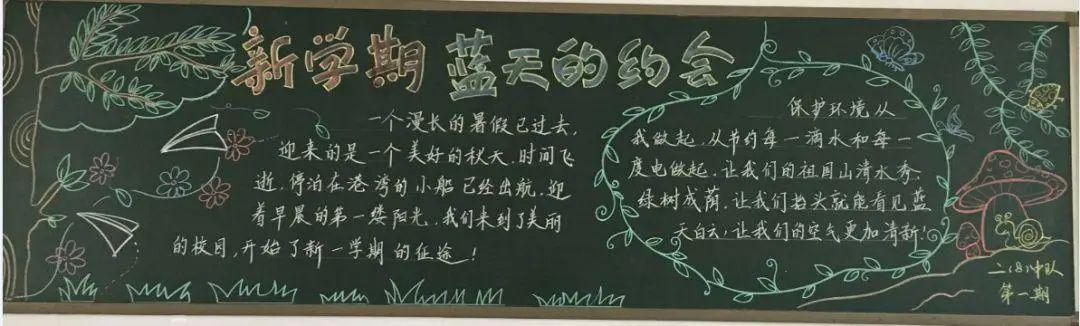 新学期 蓝天的约会
一个漫长的暑假已过去,
迎来的是一个美好的秋天.时间飞
逝.停泊在港湾的小船已经出航.迎
着早晨的第一缕阳光.我们来到了美丽
的校园,开始了新一学期的征途!
保护环境从
我做起.从节约每一滴水和每一
度电做起.让我们的祖国山清水秀.
绿树成荫.让我们抬头就能看见蓝
天白云,让我们的空气更加清新!
二(8)中队
第一期